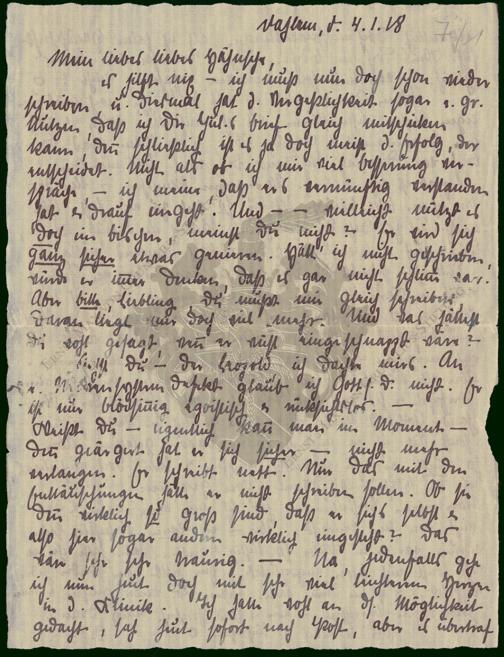 Dahlem, d. 4.1.18
Mein liebes liebes Hähnsche,
es hilft nix – ich muß nun doch schon wieder
schreiben, u. diesmal hat d. Vergeßlichkeit sogar e. gr.
Nutzen, daß ich Dir Jul.s Brief gleich mitschicken
kann, denn schließlich ist es ja doch meist d. Erfolg, der
entscheidet. Nicht als ob ich mir viel Besserung ver-
spräche – ich meine, daß er's vernünftig verstanden
hat u. drauf eingeht. Und – – vielleicht nützt es
doch ein bischen, meinst Du nicht? Er wird sich
ganz sicher etwas genieren. Hätt' ich nicht geschrieben,
würde er immer denken, daß es gar nicht schlimm war.
Aber bitte, Liebling, Du mußt mir gleich schreiben
Daran liegt mir doch viel mehr. Und was hättest
Du wohl gesagt, wenn er nicht eingeschnappt wäre?
Siehst Du – der Leopold, ich dachte mirs. An
e. defekt glaub' ich Gott s. D. nicht. Er
ist nur blödsinnig egoistisch u. rücksichtslos. —
Weißt Du – eigentlich kann man im Moment –
denn geärgert hat er sich sicher – nicht mehr
verlangen. Er schreibt nett. Nur das mit den
Enttäuschungen hätte er nicht schreiben sollen. Ob sie
denn wirklich so groß sind, daß er sich's selbst u.
also hier sogar andern wirklich eingesteht? Das
wäre sehr sehr traurig. — Na, jedenfalls geh
ich nun heut doch mit sehr viel leichterem Herzen
in d. Klinik. Ich hatte wohl an d. Möglichkeit
gedacht, sah heut sofort nach Post, aber es übertraf